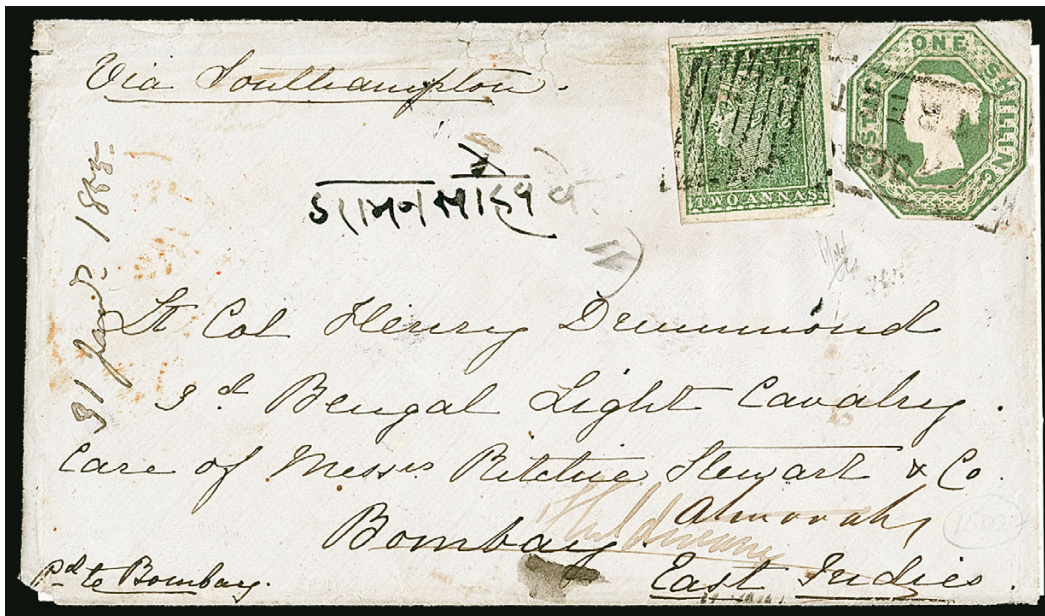 Via Southampton.
ONE SHILLING
POSTAGE
TWO ANNAS
31 Jany. 1855.
Lt Col Henry Drummond
3d Bengal Light Cavalry.
Care of Messrs Ritchie Stewart & Co.
Almorah
Bombay.
East Indies.
Pd to Bombay.